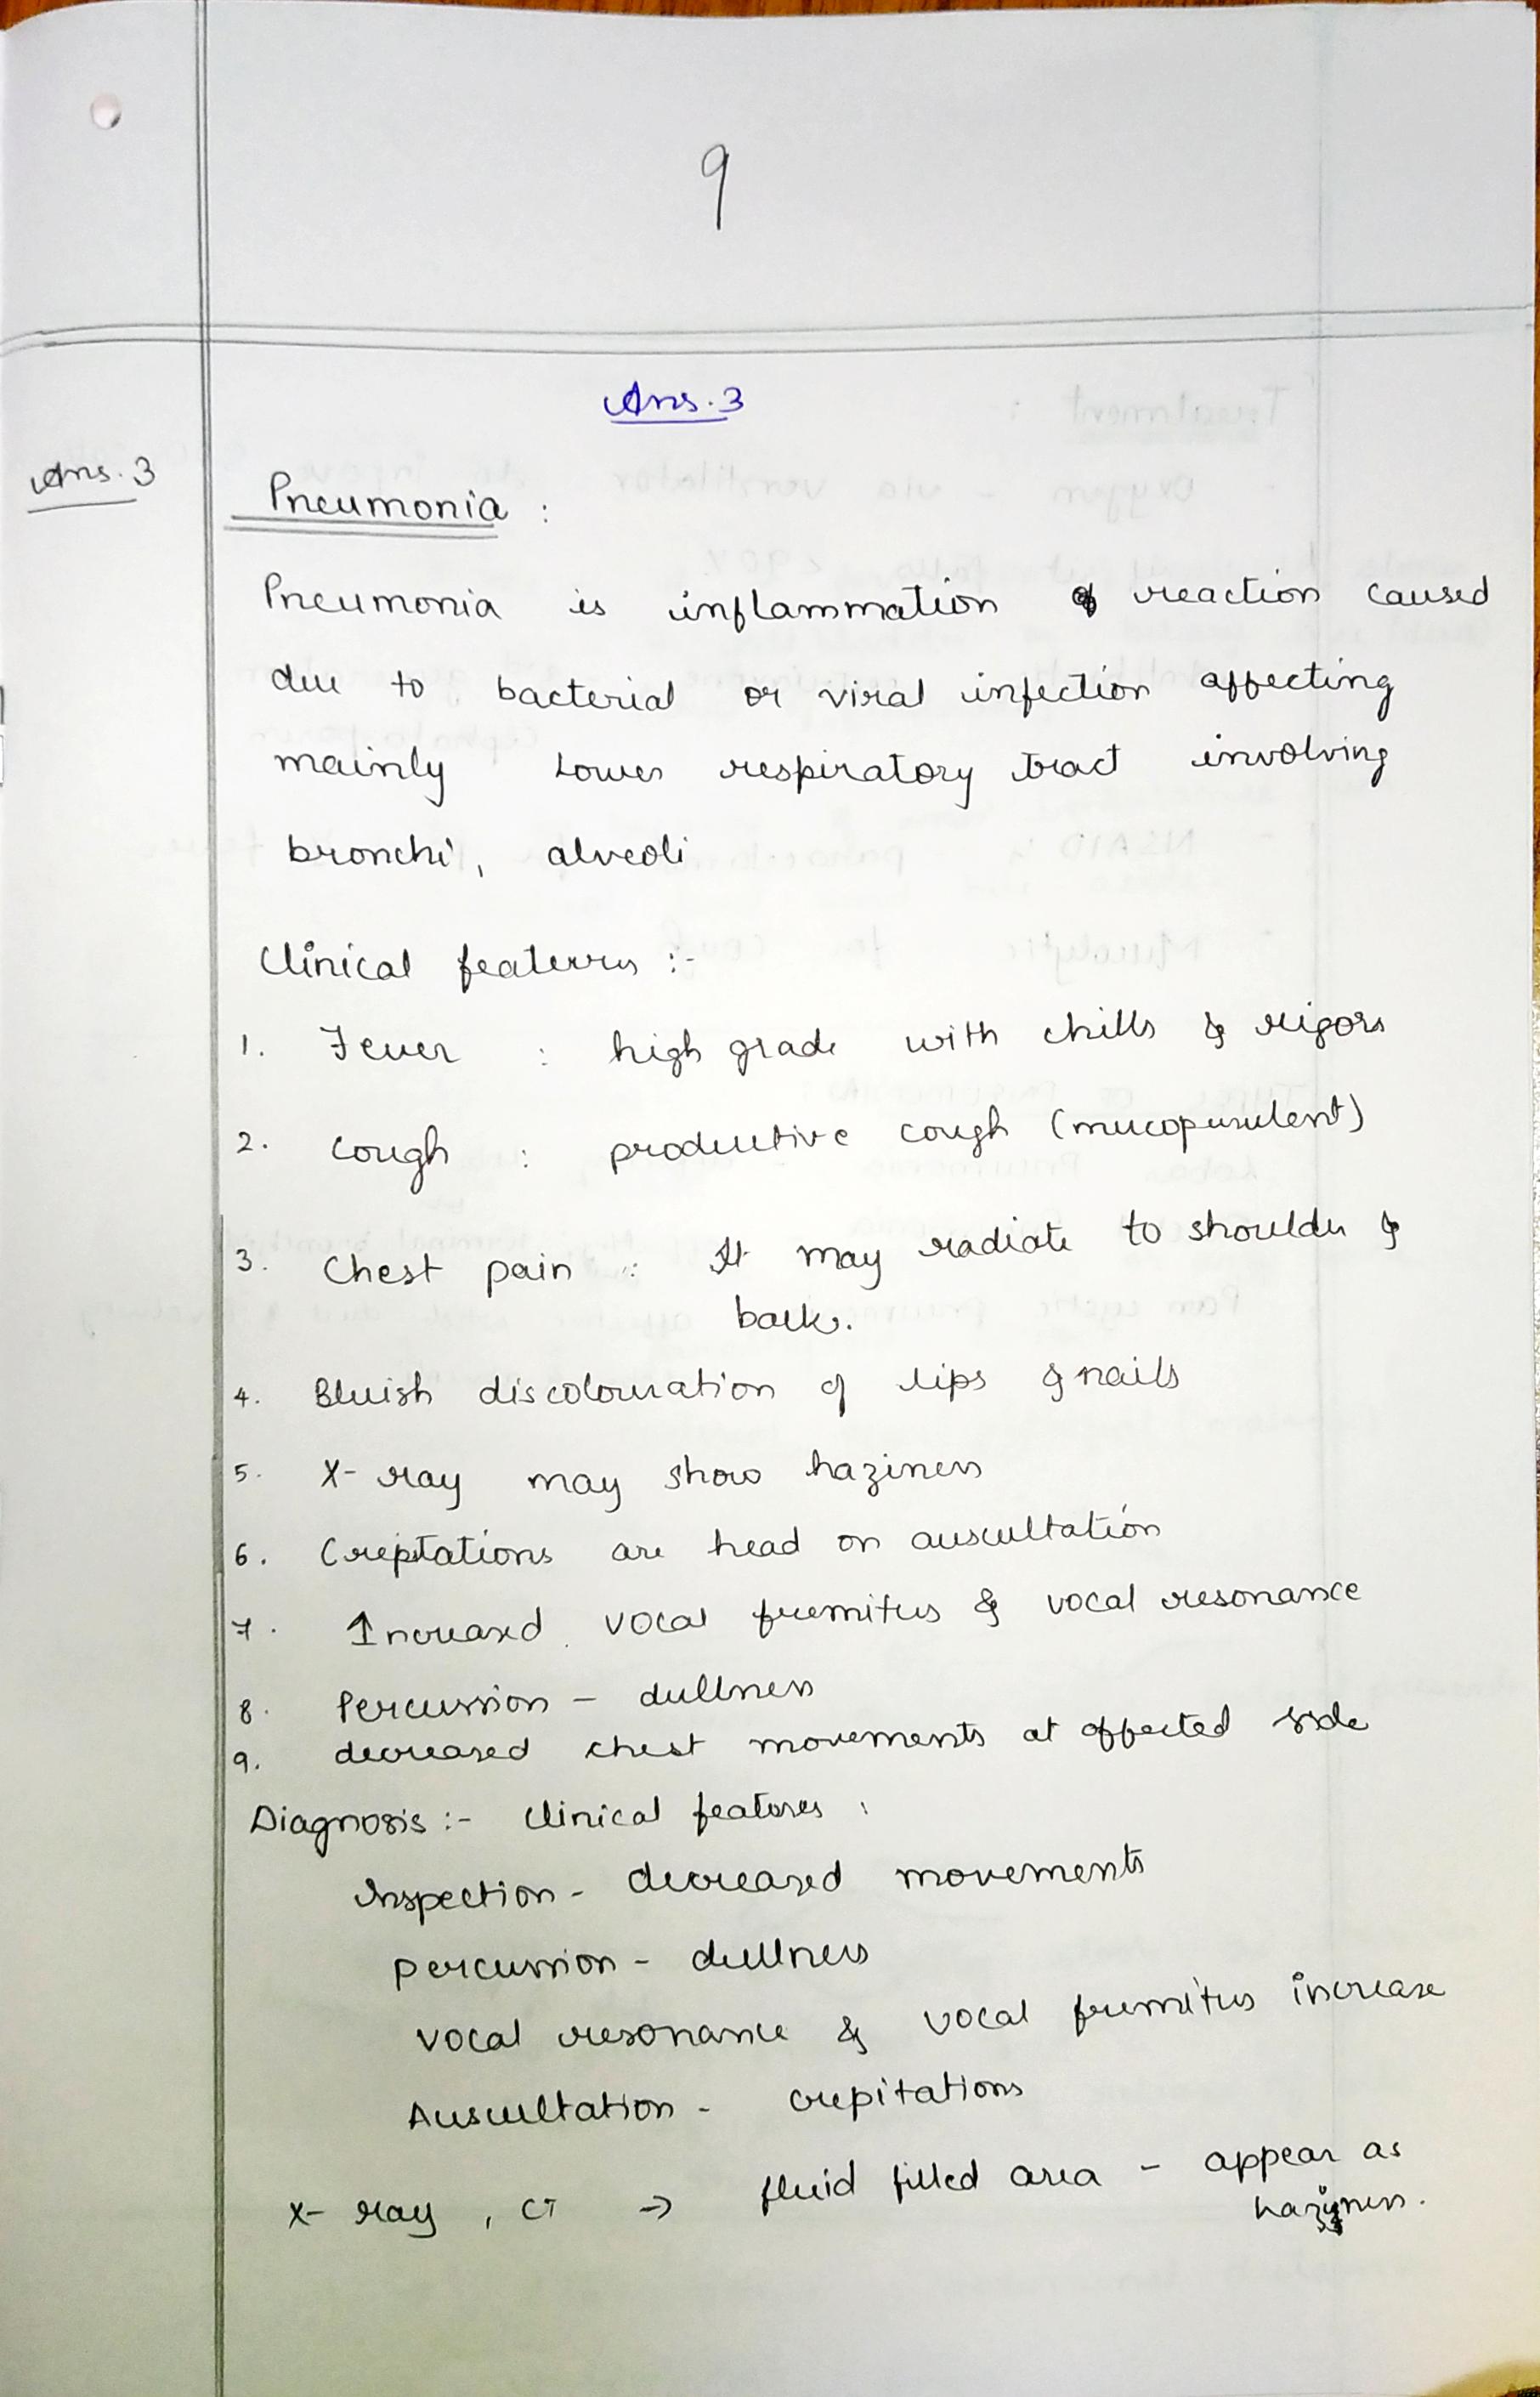 9
Ans. 3
Ans. 3
Pneumonia :
Pneumonia is inflammation reaction caused
due to bacterial or viral infection affecting
mainly Lower respiratory tract involving
bronchi, alveoli
Clinical features :-
1. Fever : high grade with chills & rigors
2. Cough : productive cough (mucopurulent)
3. Chest pain : It may radiate to shoulder &
back.
4. Bluish discolouration of lips & nails
5. X-ray may show haziness
6. Creptations are head on auscultation
7. Increased vocal fremitus & vocal resonance
8. Percussion - dullness
9. decreased chest movements at affected side
Diagnosis :- Clinical features :
Inspection - decreased movements
percussion - dullness
vocal resonance & vocal fremitus increase
Auscultation - crepitations
X-ray, CT → fluid filled area - appear as
haziness.